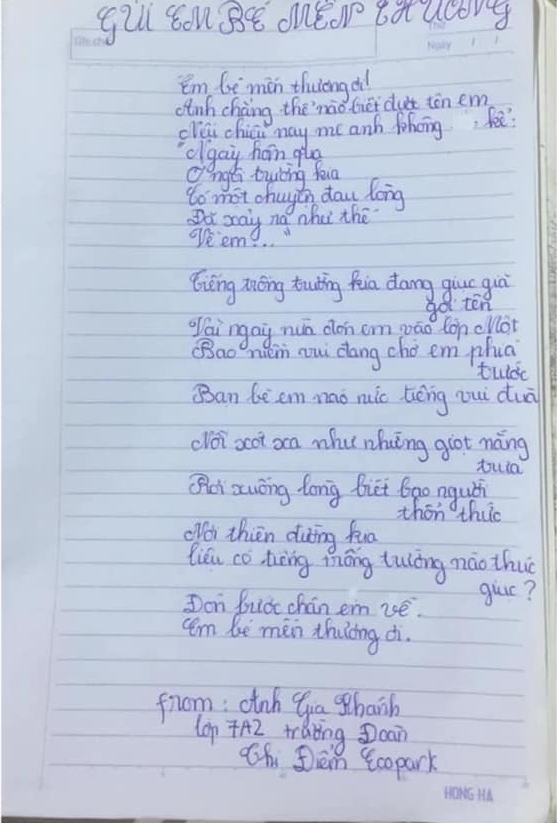 GỬI EM BÉ MẾN THƯƠNG
Ngày / /
Em bé mến thương ơi!
Anh chẳng thể nào biết được tên em
Nếu chiều nay mẹ anh không kể:
"Ngày hôm qua
Ở ngôi trường kia
Có một chuyện đau lòng
Đã xảy ra như thế
Về em?..."
Tiếng trống trường kia đang giục giã
gọi tên
Vài ngày nữa đón em vào lớp Một
Bao niềm vui đang chờ em phía
trước
Bạn bè em náo nức tiếng vui đùa
Nỗi xót xa như những giọt nắng
trưa
Rơi xuống lòng biết bao người
thổn thức
Nơi thiên đường kia
liệu có tiếng trống trường nào thúc
giục?
Đón bước chân em về.
Em bé mến thương ơi.
from: Anh Gia Khánh
lớp 7A2 trường Đoàn
Thị Điểm Ecopark
HONG HA